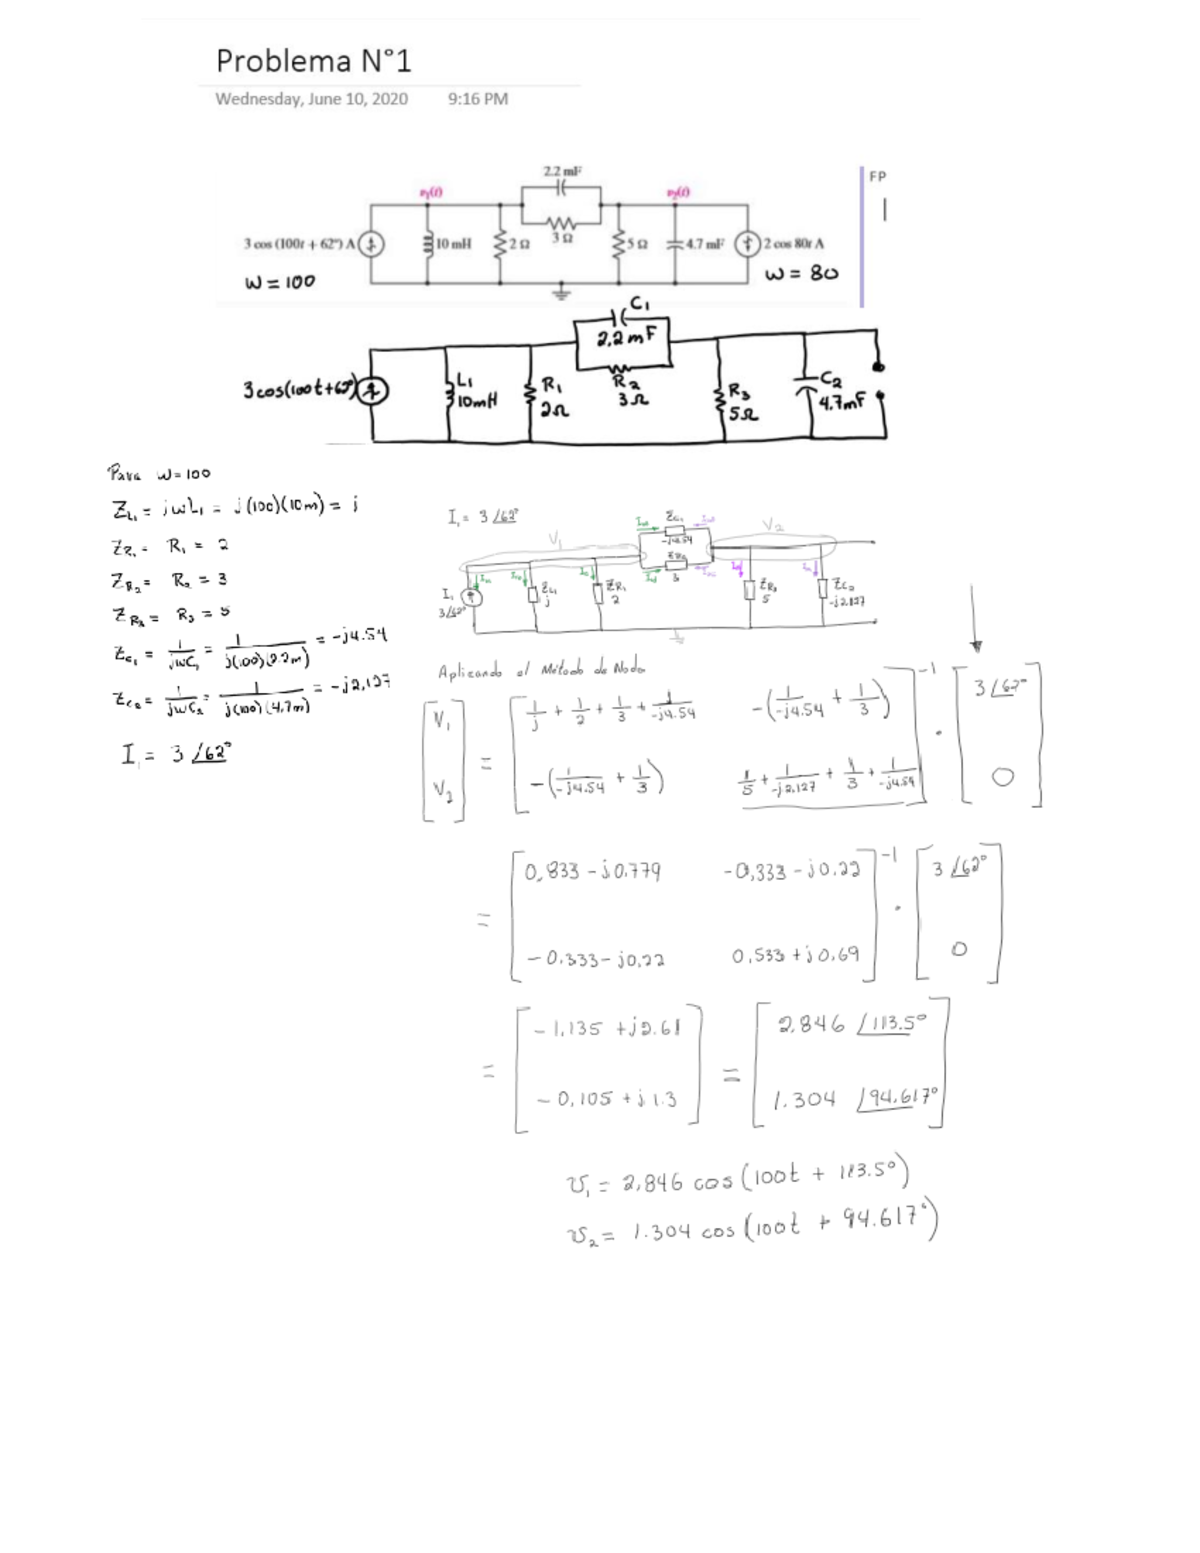 Problema N°1
Wednesday, June 10, 2020 9:16 PM
FP
2.2 mF
v₁(t)
v₂(t)
3 cos (100t + 62°) A
10 mH
2 Ω
3 Ω
5 Ω
4.7 mF
2 cos 80t A
W = 100
W = 80
C₁
2,2 mF
3 cos(100t+62°)
L₁
10mH
R₁
2Ω
R₂
3Ω
R₃
5Ω
C₂
4.7mF
Para W=100
Z_L₁ = jwL₁ = j(100)(10m) = j
Z_R₁ = R₁ = 2
Z_R₂ = R₂ = 3
Z_R₃ = R₃ = 5
Z_C₁ = 1/jwC₁ = 1/j(100)(2.2m) = -j4.54
Z_C₂ = 1/jwC₂ = 1/j(100)(4,7m) = -j2,127
I₁ = 3 ∠62°
I₁ = 3 ∠62°
V₁
V₂
Z_C₁
-j4.54
Z_R₂
3
I₁
3∠62°
Z_L₁
j
Z_R₁
2
Z_R₃
5
Z_C₂
-j2.127
Aplicando el Método de Nodo
[V₁ V₂] = [1/j + 1/2 + 1/3 + 1/-j4.54 -(1/-j4.54 + 1/3)
-(1/-j4.54 + 1/3) 1/5 + 1/-j2.127 + 1/3 + 1/-j4.54]⁻¹ · [3∠62° 0]
= [0,833 - j0.779 -0,333 - j0.22
-0.333 - j0,22 0.533 + j0.69]⁻¹ · [3∠62° 0]
= [-1,135 + j2.61 -0,105 + j1.3] = [2,846 ∠113.5° 1.304 ∠94.617°]
v₁ = 2,846 cos (100t + 113.5°)
v₂ = 1.304 cos (100t + 94.617°)